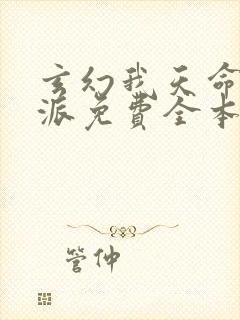 玄幻我天命
派免費全本
管仲